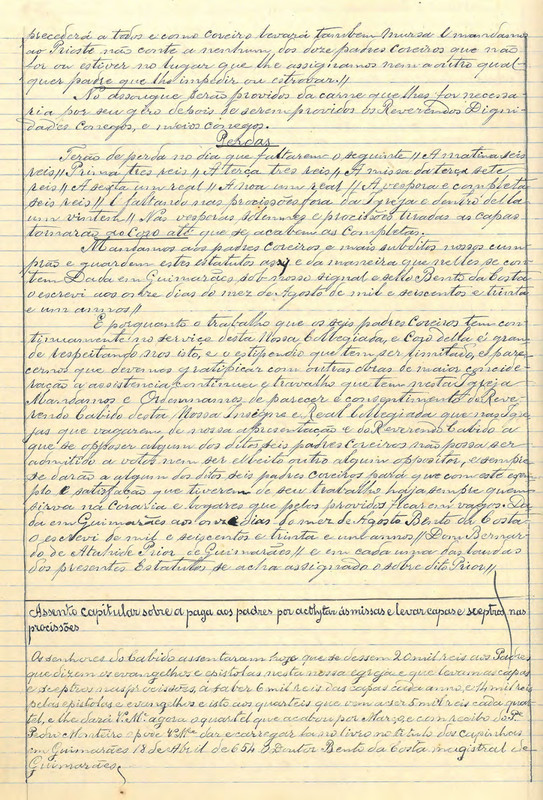 precederá a todos e como coreiro levará tambem Mursa E mandamos
ao Prioste não conte a nenhum dos doze padres coreiros que não
for ou estiver no lugar que lhe assignamos nem a outro qual-
quer padre que lhe impedir ou estrobar.//
No assougue serão providos da carne que lhes for necessa-
ria por seu giro depois de serem providos os Reverendos Digni-
dades Conegos, e meios conegos.
Perdas
Terão de perda no dia que faltarem o seguinte // A matina seis
reis // Prima tres reis // A terça tres reis // A missa da terça sete
reis // A sexta um real // A noa um real // A vespora e completa
seis reis // E faltando nas procissões fora da Igreja e dentro della
um vintem // Nas vesporas solemnes e procissões tiradas as capas
tornarão ao Coro até que se acabem as Completas.
Mandamos aos padres coreiros e mais subditos nossos cum-
prão e guardem estes estatutos assy e da maneira que nelles se con-
tem Dada em Guimarães sob nosso signal e sello Bento da Costa
o escrevi aos onze dias do mez de Agosto de mil e seiscentos e trinta
e um annos //
E porquanto o trabalho que os seis padres Coreiros tem con-
tinuamente no serviço desta Nossa Collegiada, e Coro della é gran-
de respeitando nos isto, e o estipendio que tem ser limitado, e pare-
cernos que devemos gratificar com outras obras de maior conside-
ração a assistencia continua e travalho que tem nesta Igreja
Mandamos e Ordenamos de parecer e consentimento do Reve-
rendo Cabido desta Nossa Insigne e Real Collegiada que nas Igre-
jas que vagarem de nossa apresentação e do Reverendo Cabido a
que se opposer algum dos ditos seis padres coreiros não possa ser
admitido a votos nem ser eleito outro algum oppositor, e sempre
se darão a algum dos ditos seis padres coreiros para que com este exem-
plo e satisfação que tiverem de seu trabalho haja sempre quem
sirva na Coraria e logares que pelos providos ficarem vagos. Da-
da em Guimarães aos onze dias do mez de Agosto Bento da Costa
o escrevi de mil e seiscentos e trinta e um annos // Dom Bernar-
do de Atahide Prior de Guimarães // e em cada uma das laudas
dos presentes Estatutos se acha assignado o sobredito Prior //
Assento capitular sobre a paga aos padres por acolytar ás missas e levar capas e sceptros nas
procissões
Os senhores do Cabido assentaram hoje que se dessem 20 mil reis aos Padres
que dizem os evangelhos e epistolas nesta nossa Igreja e que levam as capas
e sceptros nas procissões, a saber 6 mil reis das capas cada anno, e 14 mil reis
pelas epistolas e evangelhos e isto aos quarteis que vem a ser 5 mil reis cada quar-
tel, e lhe dará V. Mce agora o quartel que acabou por Março, e com recibo do Pe
Pedro Monteiro o pode V. Mce dar e carregar la no livro no titulo dos capinhas
em Guimarães 18 de Abril de 654 Doutor Bento da Costa magistral de
Guimarães.